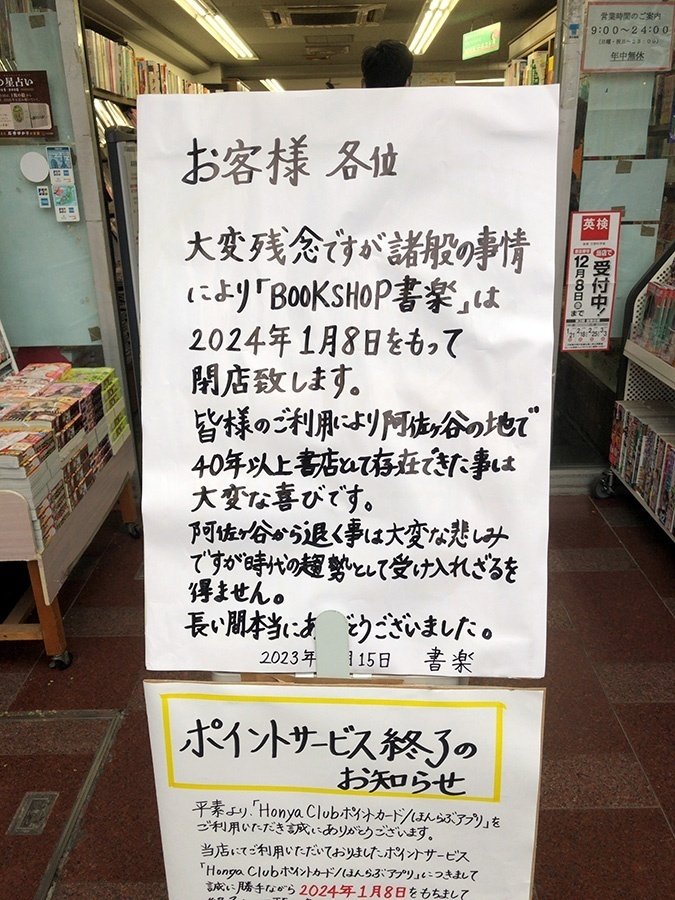 お客様 各位
大変残念ですが諸般の事情
により「BOOKSHOP書楽」は
2024年1月8日をもって
閉店致します。
皆様のご利用により阿佐ヶ谷の地で
40年以上書店として存在できた事は
大変な喜びです。
阿佐ヶ谷から退く事は大変な悲しみ
ですが時代の趨勢として受け入れざるを
得ません。
長い間本当にあ とうございました。
2023年 月15日 書楽
ポイントサービス終了の
お知らせ
平素より、「Honya Clubポイントカード/ほんらぶアプリ」を
ご利用いただき誠にありがとうございます。
当店にてご利用いただいておりましたポイントサービス
「Honya Clubポイントカード/ほんらぶアプリ」につきまして
誠に勝手ながら2024年1月8日をもちまして
営業時間のご案内
9:00〜24:00
年中無休
英検
受付中!
12月8日
まで
星占い